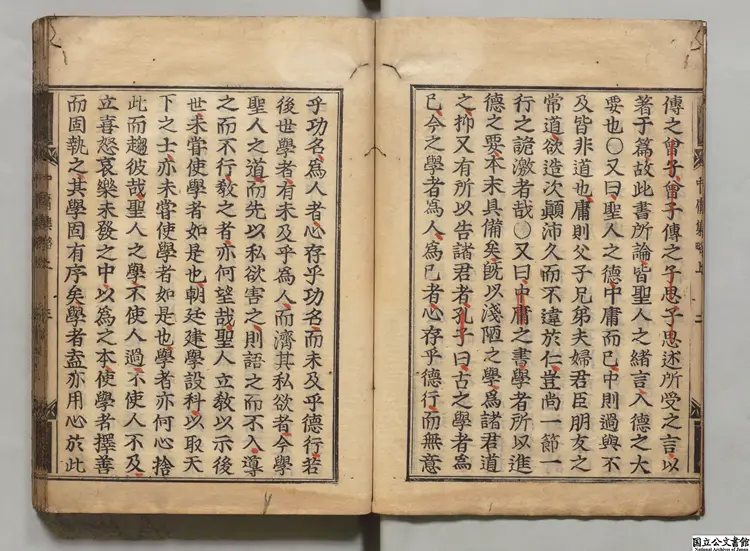 傳之曾子曾子傳之子思子思述所受之言以
著于篇故此書所論皆聖人之緒言入德之大
要也○又曰聖人之德中庸而已中則過與不
及皆非道也庸則父子兄弟夫婦君臣朋友之
常道欲造次顚沛久而不違於仁豈尚一節一
行之詭激者哉○又曰中庸之書學者所以進
德之要本末具備矣旣以淺陋之學爲諸君道
之抑又有所以告諸君者孔子曰古之學者爲
已今之學者爲人爲已者心存乎德行而無意
乎功名爲人者心存乎功名而未及乎德行若
後世學者有未及乎爲人而濟其私欲者今學
聖人之道而先以私欲害之則語之而不入導
之而不行敎之者亦何望哉聖人立敎以示後
世未嘗使學者如是也朝廷建學設科以取天
下之士亦未嘗使學者如是也學者亦何心捨
此而趨彼哉聖人之學不使人過不使人不及
立喜怒哀樂未發之中以爲之本使學者擇善
而固執之其學固有序矣學者盍亦用心於此
国立公文書館
National Archives of Japan